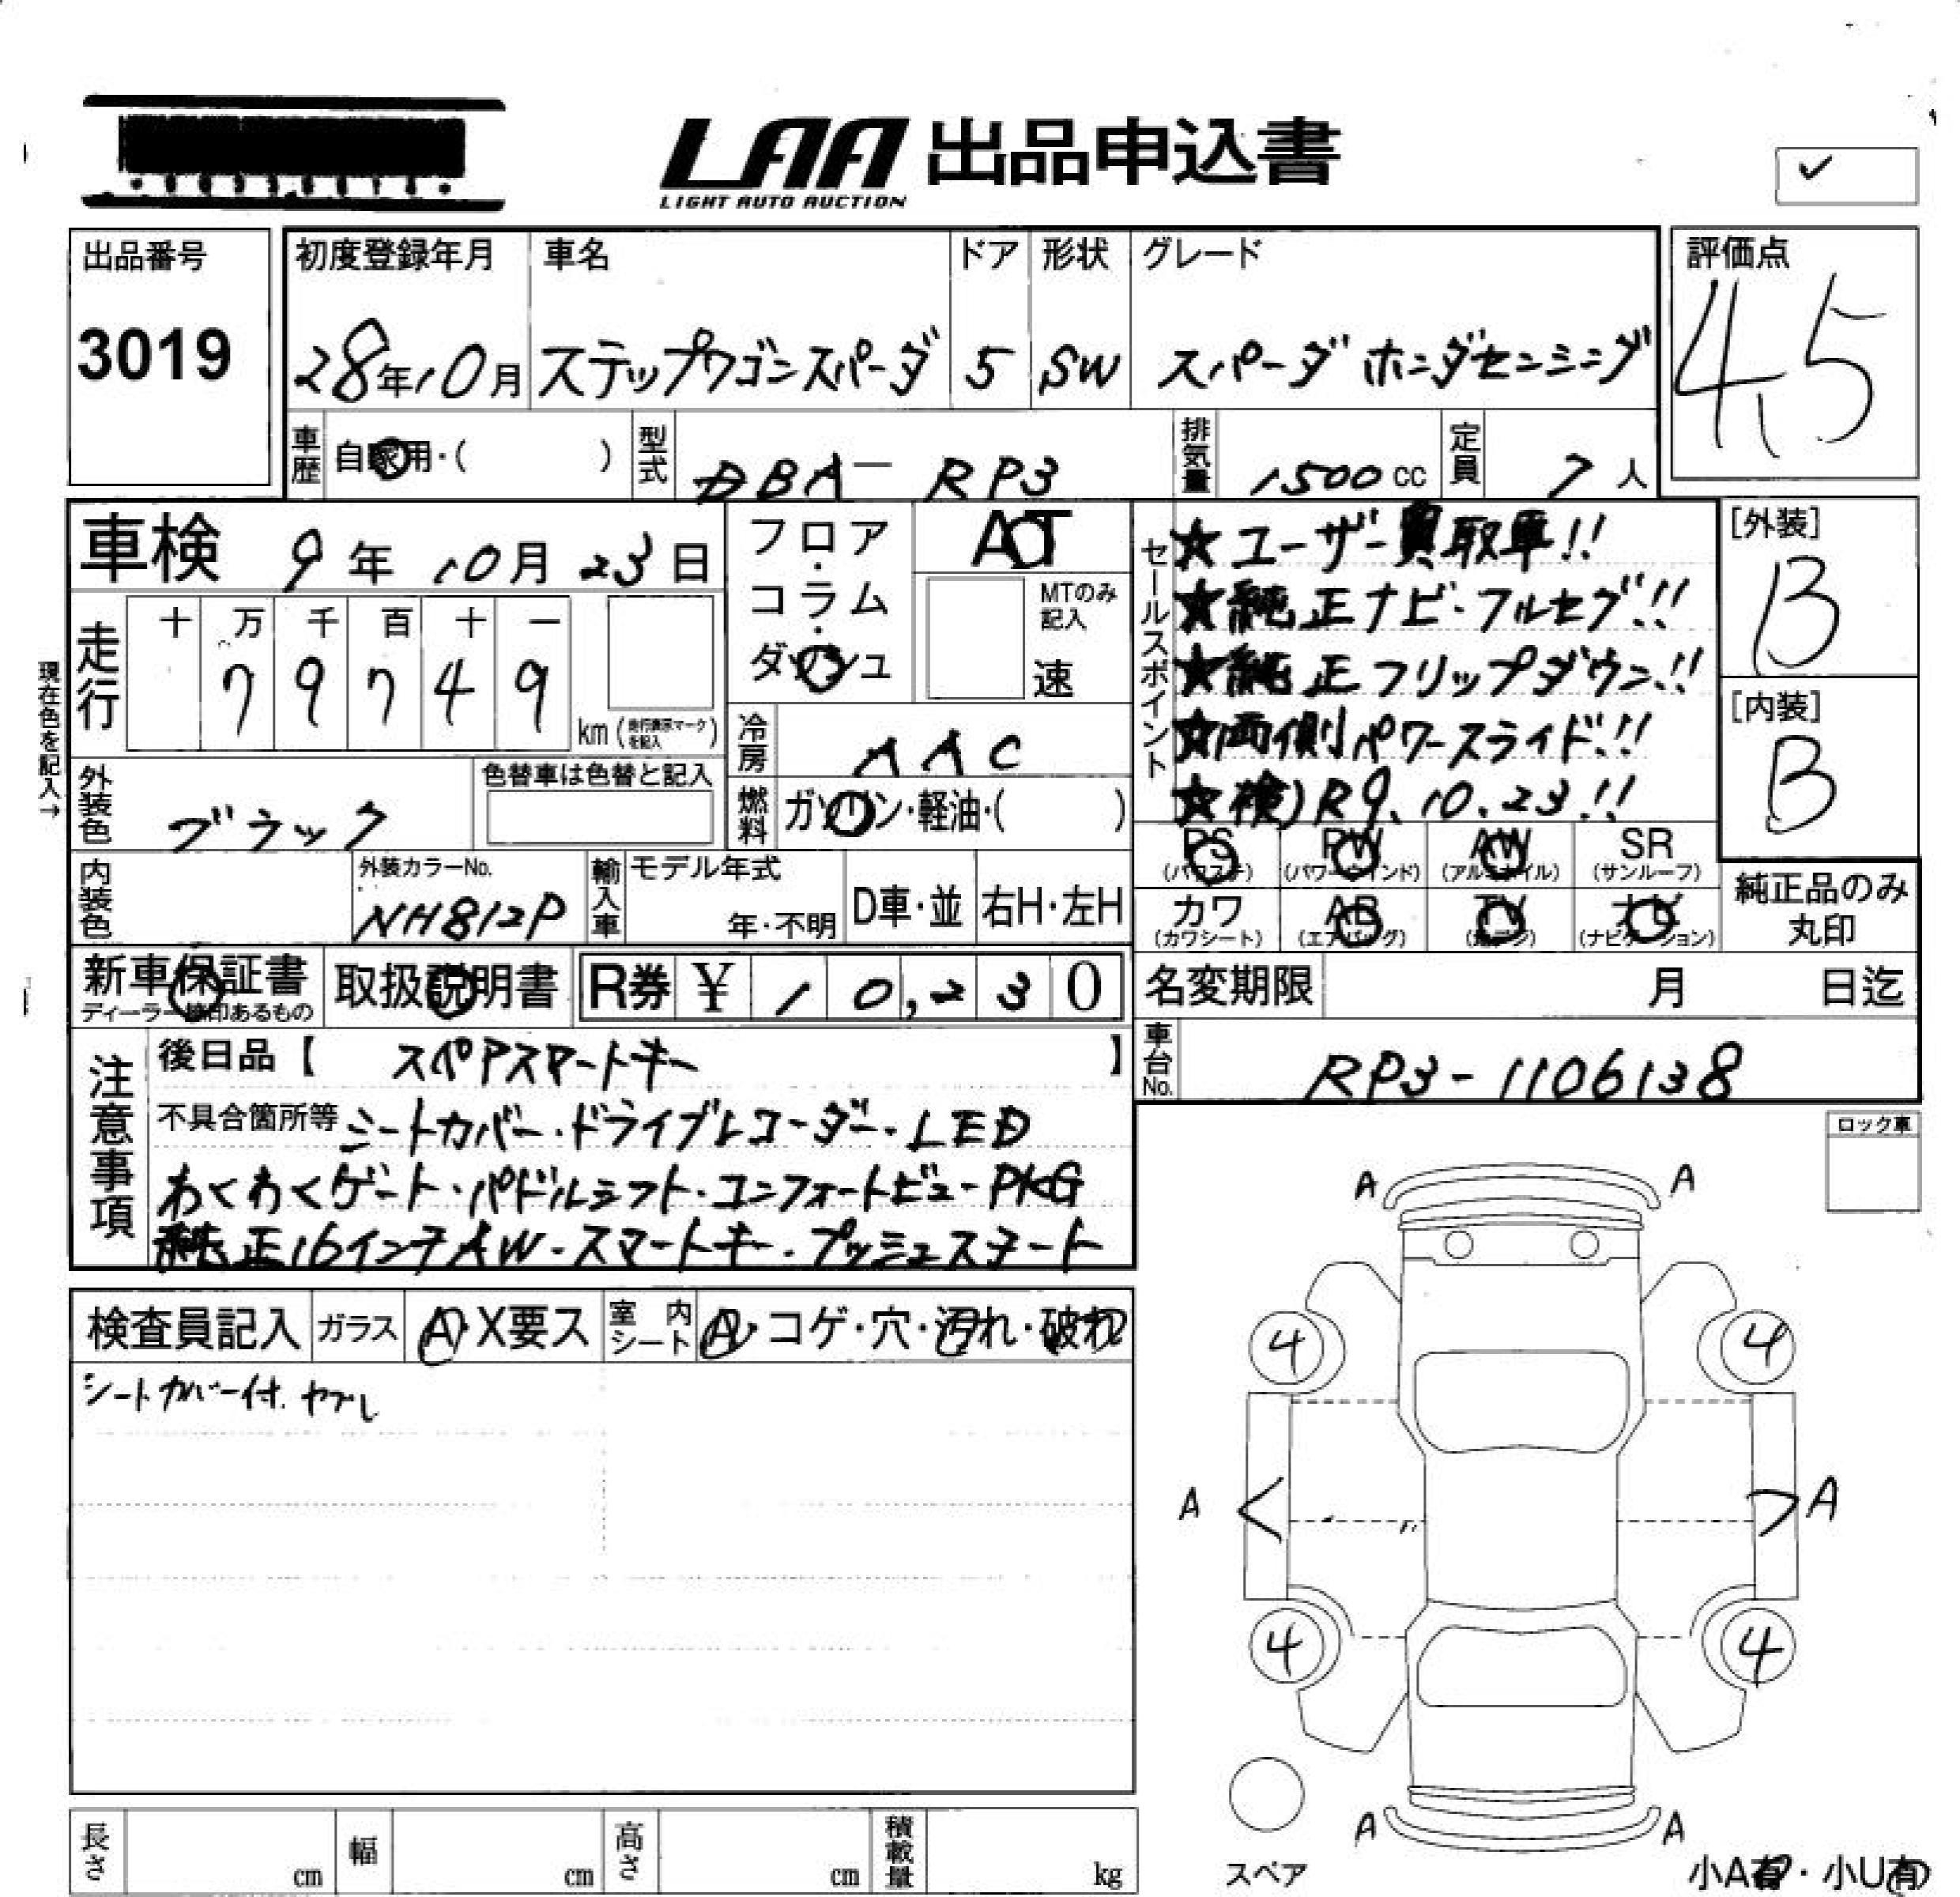 LAA 出品申込書
LIGHT AUTO AUCTION
✓
出品番号
3019
初度登録年月 車名 ドア 形状 グレード
28年10月 ステップワゴンスパーダ 5 SW スパーダ ホンダセンシング
評価点
4.5
車歴 自家用・( ) 型式 DBA-RP3 排気量 1500cc 定員 7人
車検 9年10月23日
フロア・コラム・ダッシュ
AT
MTのみ記入
速
現在色を記入→
走行 十 万 千 百 十 一
7 9 7 4 9 km (走行表示マークを記入)
冷房 AAC
燃料 ガソリン・軽油・( )
外装色 ブラック
色替車は色替と記入
セールスポイント
★ユーザー買取車!!
★純正ナビ・フルセグ!!
★純正フリップダウン!!
★両側パワースライド!!
★検)R9.10.23!!
[外装]
B
[内装]
B
PS PW AW SR
(パワステ) (パワーウインド) (アルミホイル) (サンルーフ)
カワ AB TV ナビ
(カワシート) (エアバッグ) (ナビゲーション)
純正品のみ丸印
内装色
外装カラーNo.
NH812P
輸入車 モデル年式 年・不明 D車・並 右H・左H
新車保証書
ディーラー捺印あるもの
取扱説明書 R券 ¥ 10,230
名変期限 月 日迄
車台No. RP3-1106138
注意事項
後日品【 スペアスマートキー 】
不具合箇所等 シートカバー・ドライブレコーダー・LED
わくわくゲート・パドルシフト・コンフォートビューPKG
純正16インチAW・スマートキー・プッシュスタート
ロック車
検査員記入 ガラス A・X要ス 室内シート A・コゲ・穴・汚れ・破れ
シートカバー付. ヤブレ
A A
4 4
A A
4 4
A A
スペア
小A有・小U有
長さ cm 幅 cm 高さ cm 積載量 kg